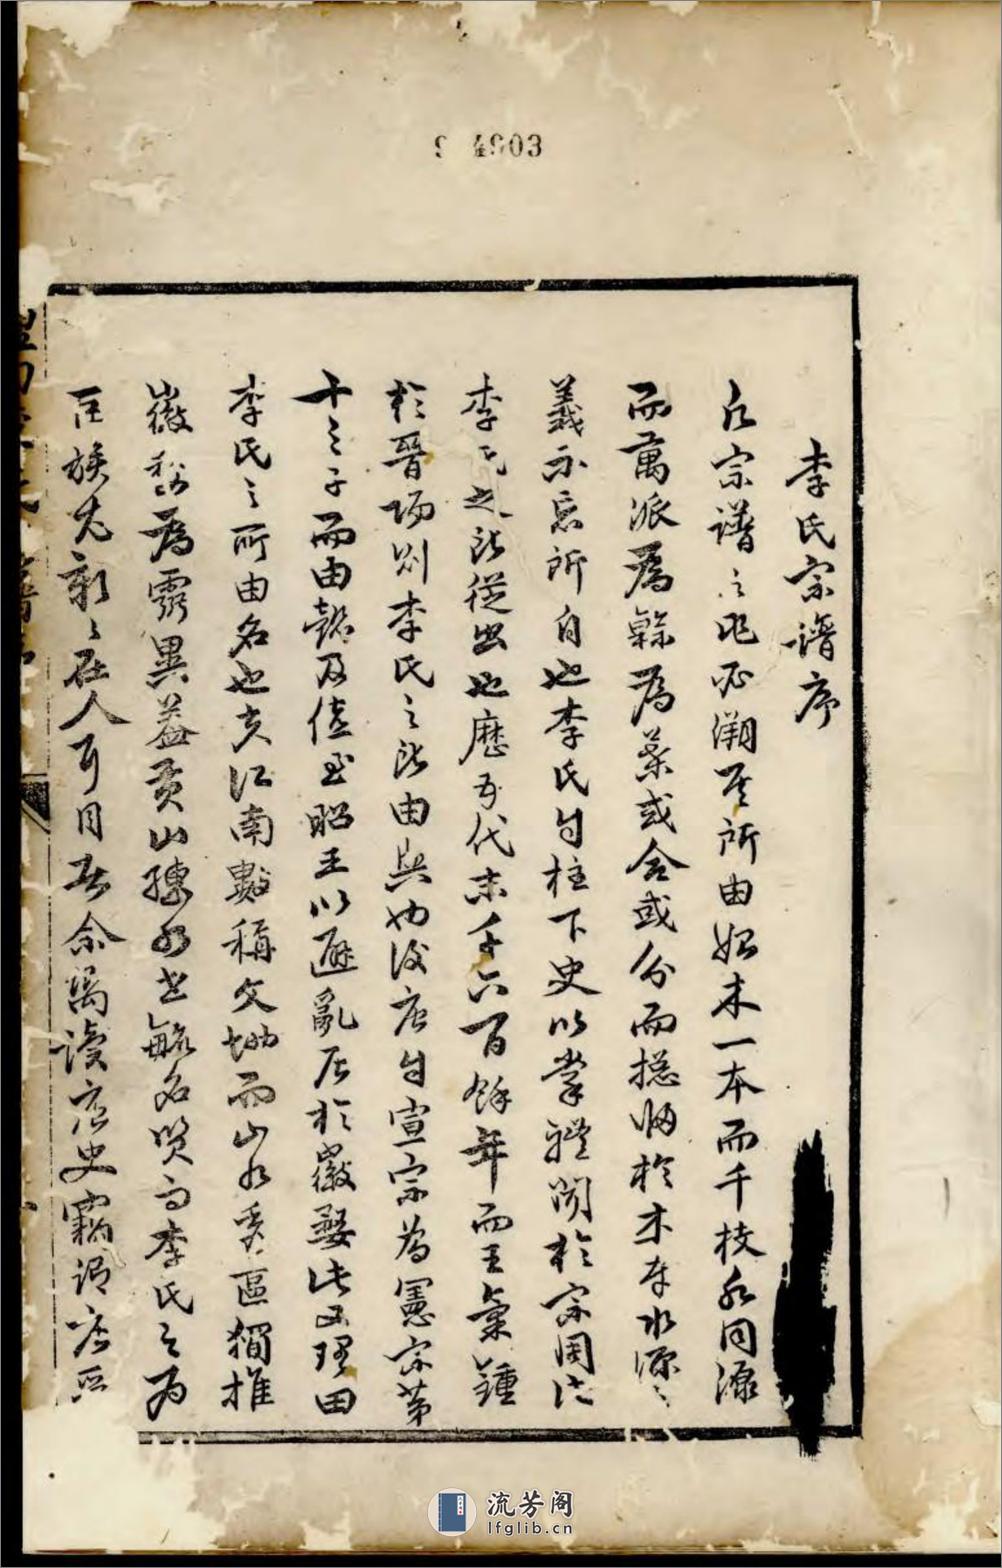 94903
李氏宗譜序
夫宗譜之作必溯其所由始木一本而千枝水同源
而萬派為幹為葉或合或分而總歸於木本水源之
義示忘所自也李氏自柱下史以掌禮聞於宗周此
李氏之所從出也歷五代末千六百餘年而王氣鍾
於晉陽則李氏之所由興也後唐自宣宗為憲宗第
十三子而由懿及僖至昭王以避亂居於徽婺此又理田
李氏之所由名也夫江南數稱文物而山水奧區獨推
徽黟為靈異蓋黃山練水世毓名賢而李氏之為
巨族尤彰彰在人耳目者余嘗讀唐史竊謂唐至
流芳阁
lfglib.cn